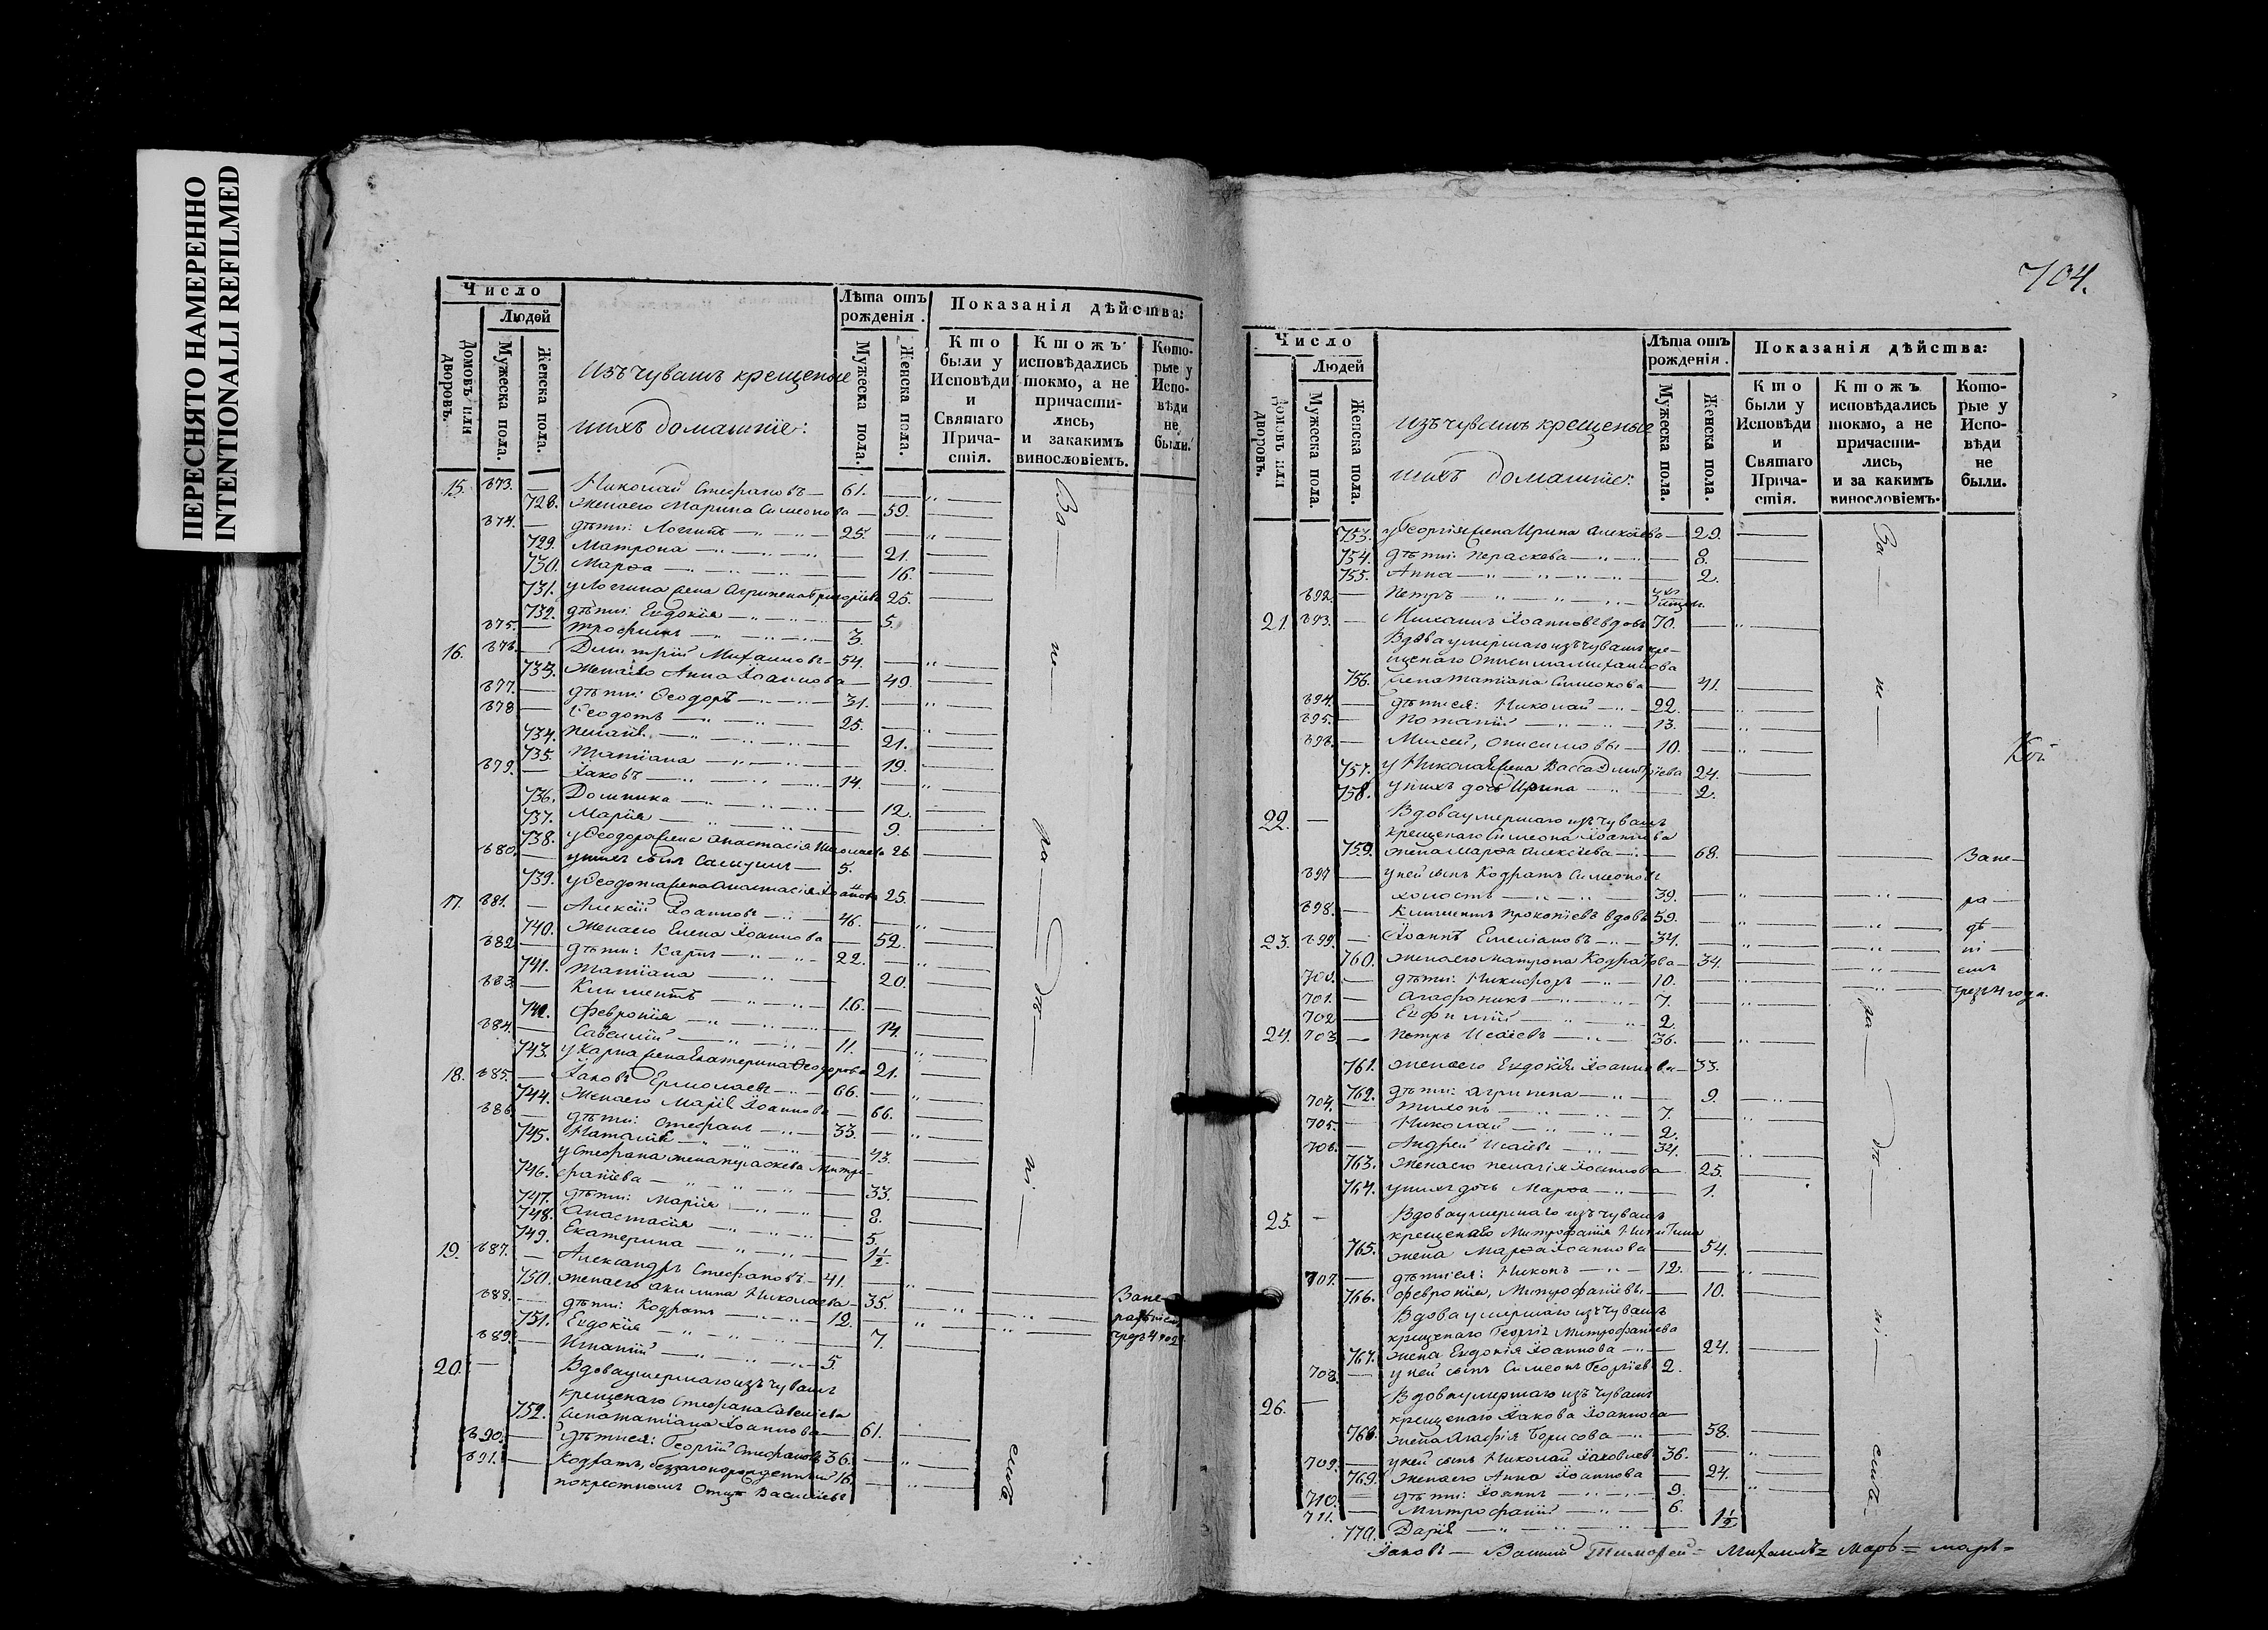 ПЕРЕСНЯТО НАМЕРЕННО
INTENTIONALLI REFILMED
Число
Людей
Домовъ или дворовъ.
Мужеска пола.
Женска пола.
Изъ чувашъ крещеные
и ихъ домашніе:
Лѣта отъ рожденія.
Мужеска пола.
Женска пола.
Показанія дѣйства:
Кто были у Исповѣди и Святаго Причастія.
Ктожъ исповѣдались токмо, а не причастились, и закакимъ винословіемъ.
Которые у Исповѣди не были.
15. 673. — Николай Стефановъ — 61.
728. Жена его Марина Симеонова — 59.
674. — дѣти: Логгинъ — 25.
729. Матрона — 21.
730. Марѳа — 16.
731. у Логгина жена Агрипена Григоріева 25.
732. дѣти: Евдокія — 5.
675. — Трофимъ — 3.
16. 676. — Димитрій Михаиловъ — 54.
733. Жена его Анна Іоаннова — 49.
677. — дѣти: Ѳеодоръ — 31.
678 — Ѳеодотъ — 25.
734. Пелагія — 21.
735. Татіана — 19.
679. — Іаковъ — 14.
736. Домника — 12.
737. Марія — 9.
738. у Ѳеодора жена Анастасія Николаева 26.
680. — у нихъ сынъ Самуилъ — 5.
739. у Ѳеодота жена Анастасія Іоаннова 25.
17. 681. — Алексій Іоанновъ — 46.
740. Жена его Елена Іоаннова — 52.
682 — дѣти: Карпъ — 22.
741. Татіана — 20.
683. — Климентъ — 16.
742. Февронія — 14.
684. — Савелій — 11.
743. у Карпа жена Екатерина Ѳеодорова 21.
18. 685. — Іаковъ Ермолаевъ — 66.
744. Жена его Марія Іоаннова — 66.
686 — дѣти: Стефанъ — 33.
745. Наталія — 43.
у Стефана жена Пуласкева Митро-
746. фанієва — 33.
747. дѣти: Марія — 8.
748. Анастасія — 5.
749. Екатерина — 1½.
19. 687. — Александръ Стефановъ — 41.
750. жена его Акилина Николаева — 35.
688. — дѣти: Кодратъ — 12.
751. Евдокія — 7.
689. — Игнатій — 5.
За не
радѣніем
чрезъ 4 года
20. — Вдова умершаго изъ чувашъ
крещенаго Стефана Савельева
752. жена Татіана Іоаннова — 61.
690. — дѣти ея: Георгій Стефановъ 36.
691. — Кодратъ, беззаконорожденный 16.
по крестномъ Отцѣ Васильевъ
За — не — ра — дѣ — ні — емъ
704.
Число
Людей
Домовъ или дворовъ.
Мужеска пола.
Женска пола.
изъ чувашъ крещеные
и ихъ домашніе:
Лѣта отъ рожденія.
Мужеска пола.
Женска пола.
Показанія дѣйства:
Кто были у Исповѣди и Святаго Причастія.
Ктожъ исповѣдались токмо, а не причастились, и за какимъ винословіемъ.
Которые у Исповѣди не были.
753. у Георгія жена Ирина Алексіева — 29.
754. дѣти: Пераскева — 8.
755. Анна — 2.
692. — Петръ —
21. 693. — Михаилъ Іоанновъ вдовъ 70.
Вдова умершаго изъ чувашъ кре-
щенаго Онисима Михаилова
756. жена Татіана Симеонова — 41.
694. — дѣти ея: Николай — 22.
695. — Потапій — 13.
696. — Моисей, Онисимовы — 10.
757. у Николая жена Васса Димитріева 24.
758. у нихъ дочь Ирина — 2.
22. — Вдова умершаго изъ чувашъ
крещенаго Симеона Іоаннова
759. жена Марѳа Алексіева — 68.
697 — у ней сынъ Кодратъ Симеоновъ
холостъ — 39.
698. — Климентъ Прокопіевъ вдовъ 59.
За не —
ра —
дѣ —
ні —
емъ
чрезъ 4 года.
23. 699. — Іоаннъ Емеліановъ — 34.
760. жена его Матрона Кодратова — 34.
700. — дѣти: Никифоръ — 10.
701. — Агафоникъ — 7.
702 — Евфимій — 2.
24. 703 — Петръ Исаіевъ — 36.
761. жена его Евдокія Іоаннова — 33.
762. дѣти: Агрипена — 9.
704. — Тихонъ — 7.
705. — Николай — 2.
706. — Андрей Исаіевъ — 34.
763. жена его Пелагія Іоаннова — 25.
764. у нихъ дочь Марѳа — 1.
25. — Вдова умершаго изъ чувашъ
крещенаго Митрофанія Никитина
765. жена Марѳа Іоаннова — 54.
707. — дѣти ея: Никонъ — 12.
766. Февронія, Митрофаніевы — 10.
Вдова умершаго изъ чувашъ
крещенаго Георгія Митрофаніева
767. жена Евдокія Іоаннова — 24.
708. — у ней сынъ Симеонъ Георгіевъ 2.
26. — Вдова умершаго изъ чувашъ
крещенаго Іакова Іоаннова —
768. жена Агафія Борисова — 58.
709. — у ней сынъ Николай Іаковлевъ 36.
769. жена его Анна Іоаннова — 24.
710. — дѣти: Іоаннъ — 9.
711. — Митрофаній — 6.
770. Дарія — 1½
За — не — ра — дѣ — ні — емъ
Іаковъ — Василій Тимоѳей = Михаилъ = Марѳ = марѳ =